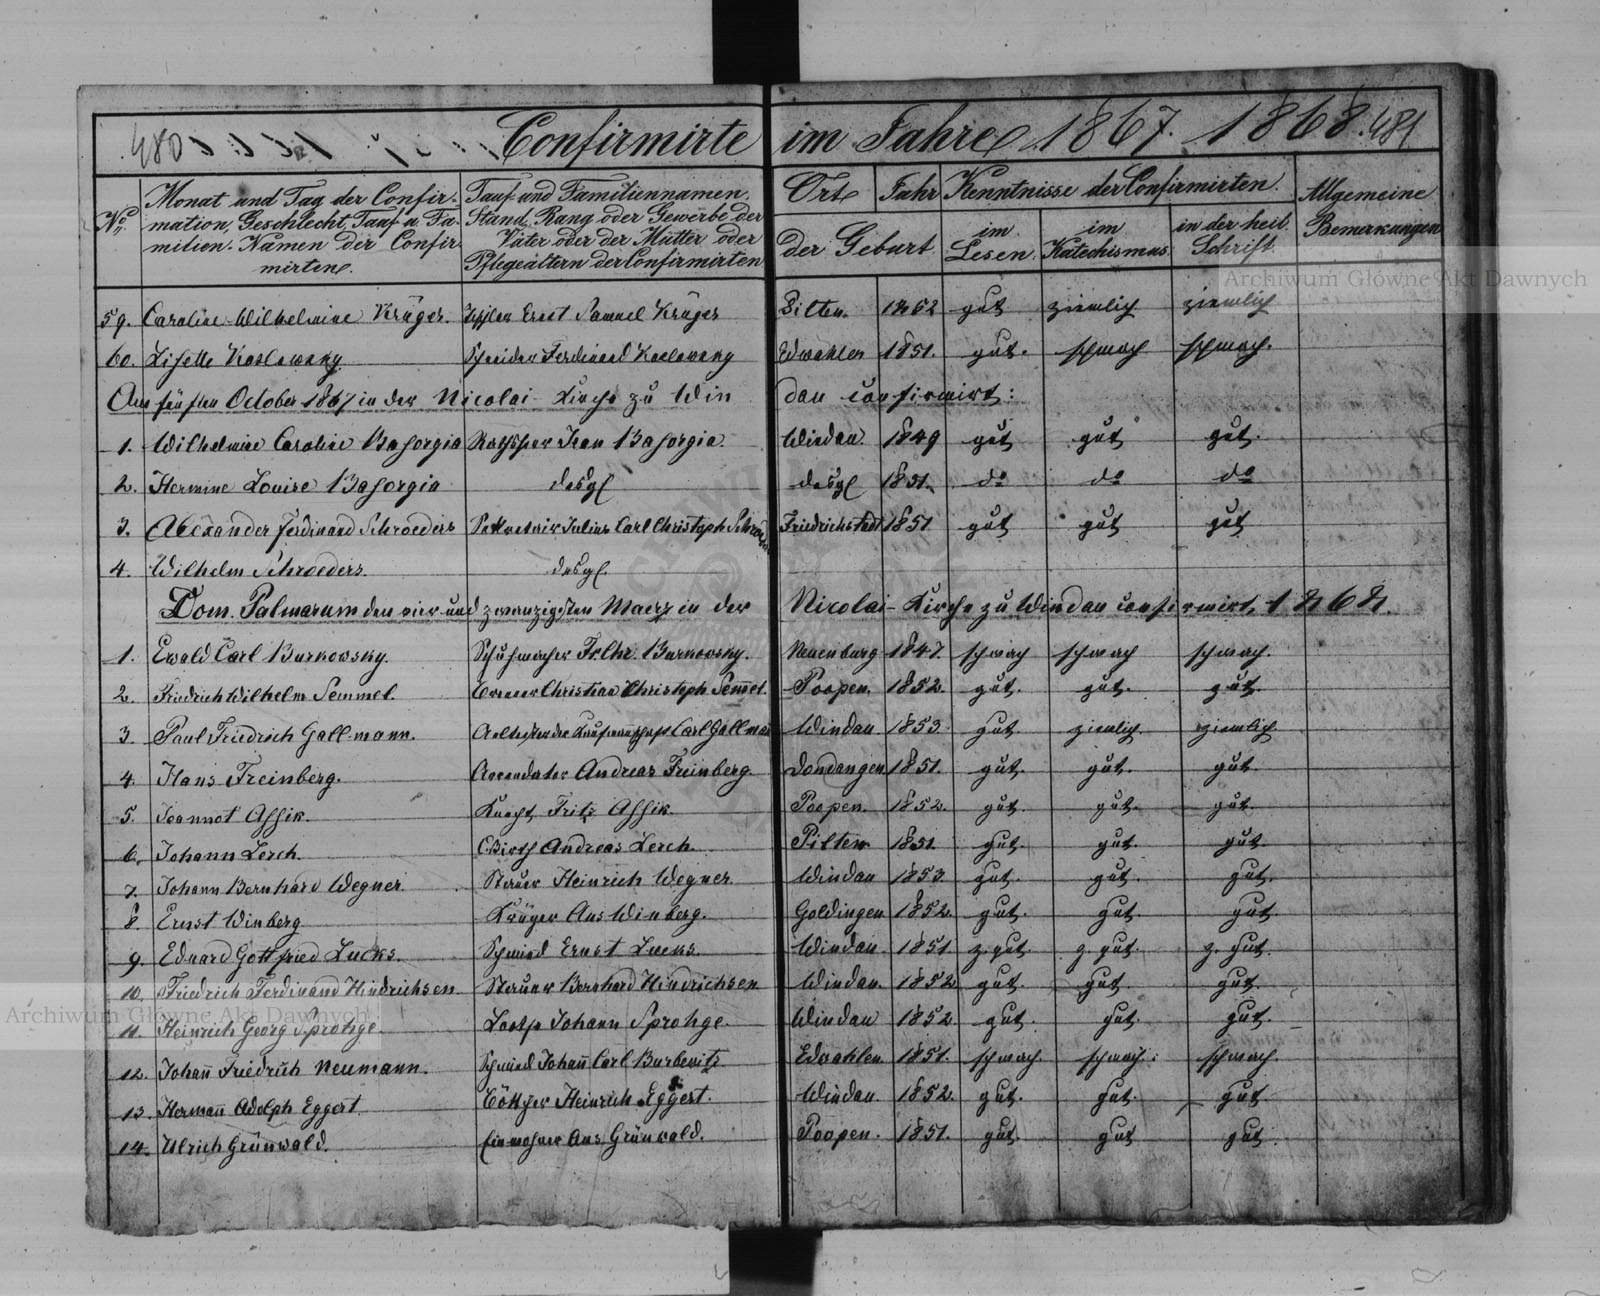 480 Confirmirte im Jahre 1867. 1868. 481
No. Monat und Tag der Confir-
mation, Geschlecht, Tauf u. Fa-
milien-Namen der Confir-
mirten.
Tauf und Familiennamen.
Stand, Rang oder Gewerbe der
Väter oder der Mütter oder
Pflegeältern der Confirmirten
Ort Jahr
der Geburt.
Kenntnisse der Confirmirten.
im Lesen. im Katechismus. in der heil. Schrift.
Allgemeine
Bemerkungen
59. Caroline Wilhelmine Krüger. Ernst Samuel Krüger Pilten. 1852 gut ziemlich ziemlich
60. Lisette Koslowsky Schneider Ferdinand Koslowsky Edwahlen 1851. gut. schwach schwach.
Am fünften October 1867 in der Nicolai-Kirche zu Windau confirmirt:
1. Wilhelmine Caroline Bahorgia Rathsherr Jean Bahorgia. Windau 1849 gut gut gut.
2. Hermine Louise Bahorgia desgl desgl 1851. do do do
3. Alexander Ferdinand Schroeders Sekretair Julius Carl Christoph Friedrichstadt 1851 gut gut gut
4. Wilhelm Schroeders. desgl.
Dom. Palmarum den vier und zwanzigsten Maerz in der Nicolai-Kirche zu Windau confirmirt, 1868.
1. Ewald Carl Burkowsky. Schuhmacher Fr. Chr. Burkowsky. Neuenburg 1847. schwach schwach schwach.
2. Friedrich Wilhelm Semmel. Christian Christoph Semmel. Poopen. 1852. gut. gut. gut.
3. Paul Friedrich Gallmann. Carl Gallmann Windau 1853. gut ziemlich. ziemlich.
4. Hans Freinberg. Arrendator Andreas Freinberg. Dondangen 1851. gut. gut. gut.
5. Jeannot Assik. Knecht Fritz Assik. Poopen. 1852. gut. gut. gut.
6. Johann Lerch. Wirth Andreas Lerch. Pilten. 1851. gut. gut. gut.
7. Johann Bernhard Wegner. Heinrich Wegner. Windau 1853. gut. gut. gut.
8. Ernst Winberg Krüger Ans Winberg. Goldingen 1852. gut. gut. gut.
9. Eduard Gottfried Lucks. Schmied Ernst Lucks. Windau. 1851 z. gut z. gut. z. gut.
10. Friedrich Ferdinand Hindrichsen Bernhard Hindrichsen Windau. 1852 gut. gut. gut.
11. Heinrich Georg Sprohge. Lootse Johann Sprohge. Windau 1852. gut. gut. gut.
12. Johann Friedrich Neumann. Schmied Johann Carl Burbewitz Edwahlen. 1851. schwach. schwach. schwach.
13. Hermann Adolph Eggert Böttger Heinrich Eggert. Windau 1852. gut. gut. gut
14. Ulrich Grünwald. Einwohner Ans Grünwald. Poopen. 1851. gut. gut gut.
Archiwum Główne Akt Dawnych
Archiwum Główne Akt Dawnych